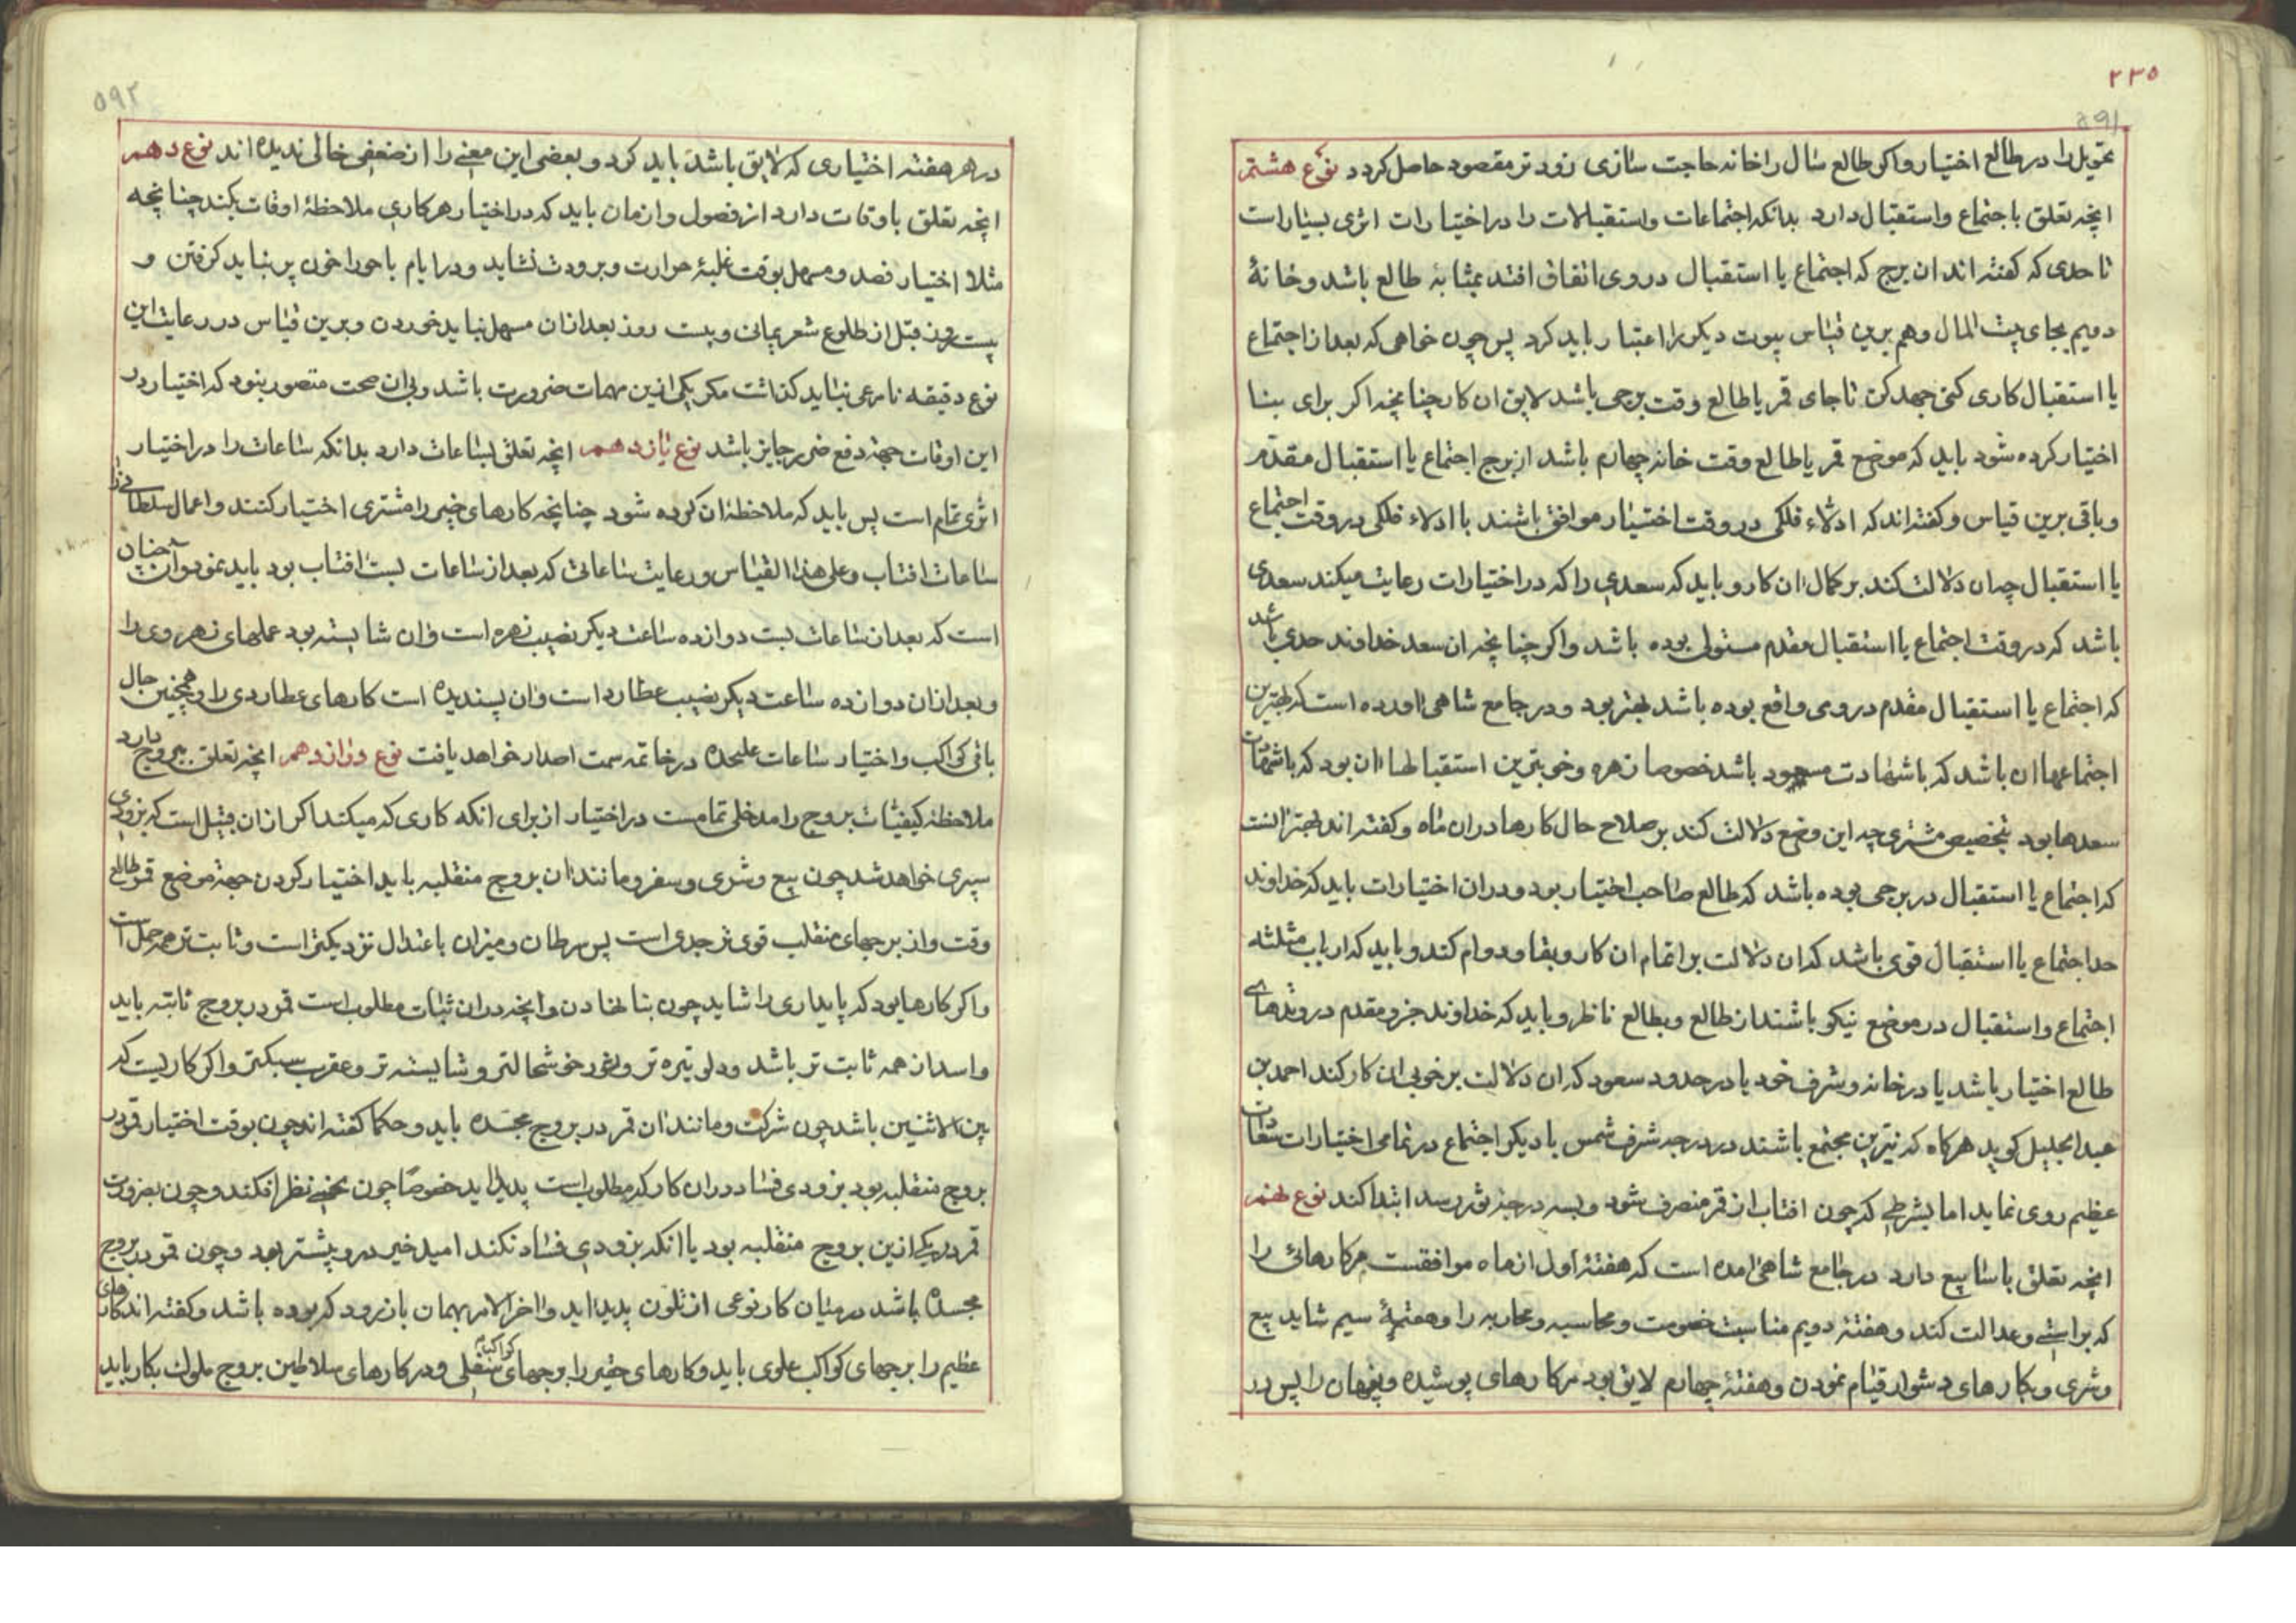 ۲۳۵
۵۹۱
تحویل را در طالع اختیار و اکر طالع سال را خانه حاجت سازی زودتر مقصود حاصل کردد نوع هشتم
انچه تعلق باجتماع و استقبال دارد بدانکه اجتماعات و استقبالات را در اختیارات اثری بسیار است
تا حدی که کفته اند ان برج که اجتماع یا استقبال در وی اتفاق افتد بمثابهٔ طالع باشد و خانهٔ
دویم بجای بیت المال و هم برین قیاس بیوت دیکر را اعتبار باید کرد پس چون خواهی که بعد از اجتماع
یا استقبال کاری کنی جهد کن تا جای قمر یا طالع وقت برجی باشد لایق ان کار چنانچه اکر برای بنا
اختیار کرده شود باید که موضع قمر یا طالع وقت خانه چهارم باشد از برج اجتماع یا استقبال مقدّم
و باقی برین قیاس و کفته اند که ادلاء فلکی در وقت اختیار موافق باشند با ادلاء فلکی در وقت اجتماع
یا استقبال چه ان دلالت کند بر کمال ان کار و باید که سعدی را که در اختیارات رعایت میکند سعدی
باشد که در وقت اجتماع یا استقبال مقدم مستولی بوده باشد و اکر چنانچه ان سعد خداوند حدی باشد
که اجتماع یا استقبال مقدم در وی واقع بوده باشد بهتر بود و در جامع شاهی اورده است که بهترین
اجتماعها ان باشد که باشهادت مسعود باشد خصوصا زهره و خوبترین استقبالها ان بود که باشهادت
سعدها بود بتخصیص مشتری چه این وضع دلالت کند بر صلاح حال کارها در ان ماه و کفته اند بهتر انست
که اجتماع یا استقبال در برجی بوده باشد که طالع صاحب اختیار بود و در ان اختیارات باید که خداوند
حد اجتماع یا استقبال قوی باشد که ان دلالت بر اتمام ان کار و بقا و دوام کند و باید که ارباب مثلثه
اجتماع و استقبال در موضع نیکو باشند از طالع و بطالع ناظر و باید که خداوند جزو مقدم در وتدهای
طالع اختیار باشد یا در خانه و شرف خود یا در حدود سعود که ان دلالت بر خوبی ان کار کند احمد بن
عبد الجلیل کوید هرکاه که نیرین مجتمع باشند در درجه شرف شمس یا دیکر اجتماع در تمامی اختیارات سعادت
عظیم روی نماید اما بشرطی که چون افتاب از قمر منصرف شود و بسه درجه ثور رسد ابتدا کند نوع نهم
انچه تعلق باسابیع دارد در جامع شاهی امده است که هفتهٔ اول از ماه موافقست مر کارهائی را
که براستی و عدالت کند و هفتهٔ دویم مناسبت خصومت و محاسبه و محاربه را و هفتهٔ سیم شاید بیع
و شری و بکارهای دشوار قیام نمودن و هفتهٔ چهارم لایق بود مر کارهای پوشیده و پنهان را پس در
۵۹۲
در هر هفته اختیاری که لایق باشد باید کرد و بعضی این معنی را از ضعفی خالی ندیده اند نوع دهم
انچه تعلق باوقات دارد از فصول و ازمان باید که در اختیار هر کاری ملاحظهٔ اوقات بکند چنانچه
مثلا اختیار فصد و مسهل بوقت غلبهٔ حرارت و برودت نشاید و در ایام باحورا خون پر نباید کرفتن و
بیست روز قبل از طلوع شعر یمانی و بیست روز بعد ازان مسهل نباید خوردن و برین قیاس در رعایت این
نوع دقیقه نامرعی نباید کذاشت مکر یکی ازین مهمات ضرورت باشد و بی ان صحت متصور نبود که اختیار در
این اوقات جهة دفع ضرر جایز باشد نوع یازدهم انچه تعلق بساعات دارد بدانکه ساعات را در اختیار
اثری تمام است پس باید که ملاحظهٔ ان کرده شود چنانچه کارهای خیر را مشتری اختیار کنند و اعمال سلطانی را
ساعات افتاب و علی هذا القیاس و رعایت ساعاتی که بعد از ساعات بست افتاب بود باید نمود و ان چنان
است که بعد از ساعات بست دوازده ساعت دیکر نصیب زهره است و ان شایسته بود عملهای زهروی را
و بعد ازان دوازده ساعت دیکر نصیب عطارد است و ان پسندیده است کارهای عطاردی را و همچنین حال
باقی کواکب و اختیار ساعات علیحده در خاتمه سمت اصدار خواهد یافت نوع دوازدهم انچه تعلق ببروج دارد
ملاحظهٔ کیفیات بروج را مدخلی تمامست در اختیار از برای انکه کاری که میکند اکر ازان قبیل است که بزودی
سپری خواهد شد چون بیع و شری و سفر و مانند ان بروج منقلبه باید اختیار کردن جهة موضع قمر و طالع
وقت و از برجهای منقلب قوی تر جدی است پس سرطان و میزان باعتدال نزدیکتر است و ثابت تر همه حمل است
و اکر کارها بود که پایداری را شاید چون بنا نهادن و انچه در ان ثبات مطلوب است قمر در بروج ثابته باید
و اسد از همه ثابت تر باشد و دلو تیره تر و ثور خوشحالتر و شایسته تر و عقرب سبکتر و اکر کاریست که
بین الاثنین باشد چون شرکت و مانند ان قمر در بروج مجسده باید و حکما کفته اند چون بوقت اختیار قمر در
بروج منقلبه بود بزودی فساد در ان کار که مطلوب است پدید اید خصوصًا چون نحسی نظر افکند و چون بضرورت
قمر در یکی ازین بروج منقلبه بود یا انکه بزودی فساد نکند امید خیر در و بیشتر بود و چون قمر در بروج
مجسده باشد در میان کار نوعی از تلون پدید اید و اخر الامر بهمان باز رود که بوده باشد و کفته اند کارهای
عظیم را برجهای کواکب علوی باید و کارهای حقیر را برجهای کواکب سفلی و در کارهای سلاطین بروج ملوک بکار باید